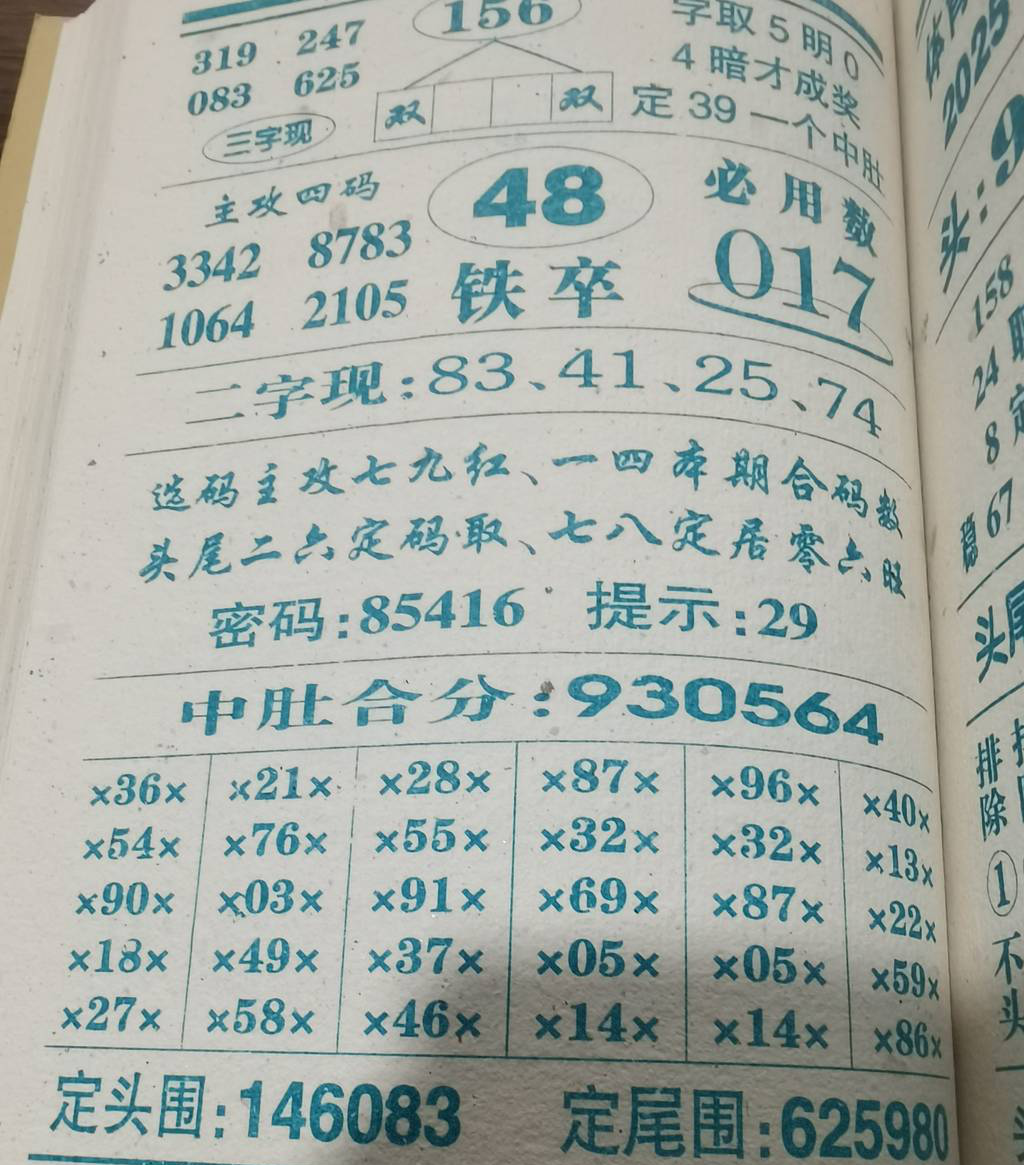 319 247
083 625
三字现
156
双 双
字取5明0
4暗才成奖
定39一个中肚
主攻四码
3342 8783
1064 2105
48
铁卒
必用数
017
二字现:83、41、25、74
选码主攻七九红、一四本期合码数
头尾二六定码取、七八定居零六旺
密码:85416 提示:29
中肚合分:930564
×36× ×21× ×28× ×87× ×96× ×40×
×54× ×76× ×55× ×32× ×32× ×13×
×90× ×03× ×91× ×69× ×87× ×22×
×18× ×49× ×37× ×05× ×05× ×59×
×27× ×58× ×46× ×14× ×14× ×86×
定头围:146083 定尾围:625980
2025
头:9
158
24
8
稳67
头尾
排除
①
不
头